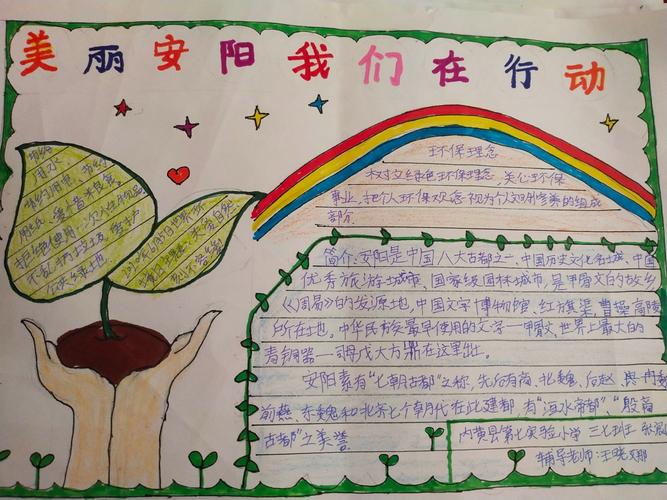 美丽安阳我们在行动
节约
用水
节约用电
拒绝使用一次性物品
不乱丢垃圾
环保理念
树立绿色环保理念，关心环保
事业，把个人环保观念视为个人文明修养的组成
部分
简介：安阳是中国八大古都之一、中国历史文化名城、中国
优秀旅游城市、国家级园林城市，是甲骨文的故乡
《周易》的发源地，中国文字博物馆、红旗渠、曹操高陵
所在地。中华民族最早使用的文字—甲骨文、世界上最大的
青铜器—司母戊大方鼎在这里出土。
安阳素有“七朝古都”之称，先后有商、北魏、后赵、冉魏
前燕、东魏和北齐七个朝代在此建都，有“洹水帝都”、“殷商
古都”之美誉
内黄县第七实验小学 三七班
辅导老师：王晓娜